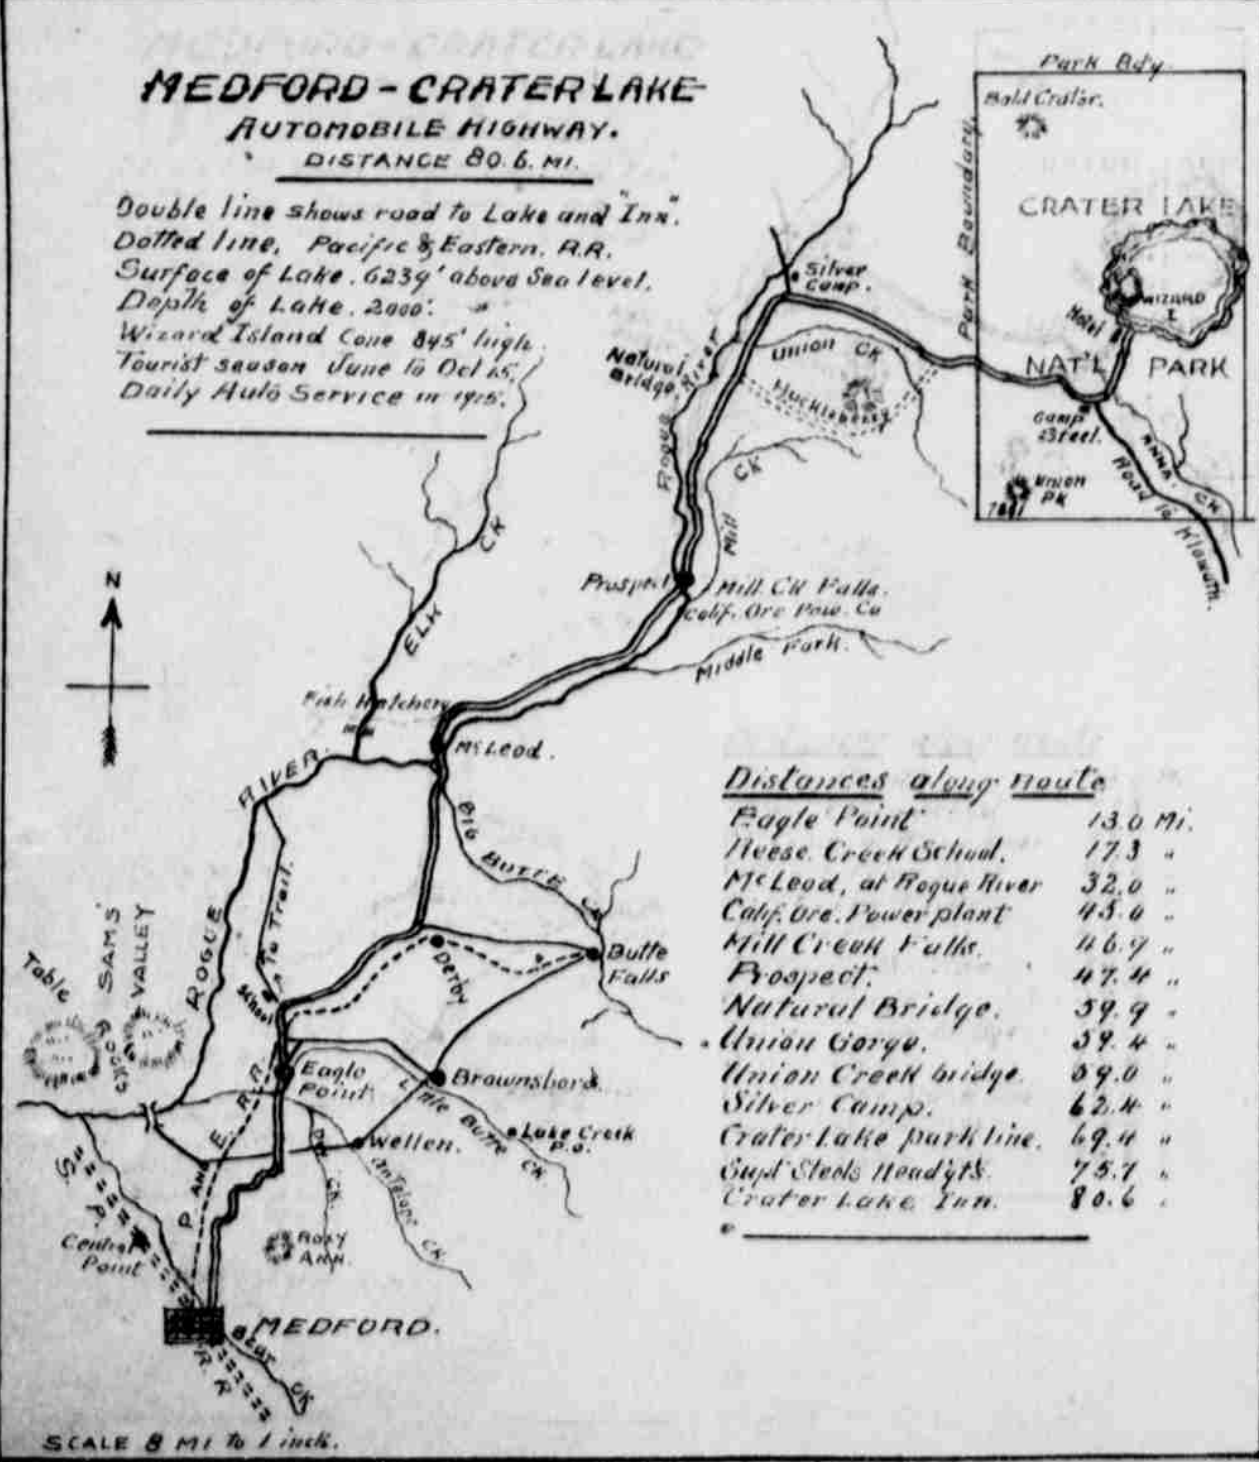 MEDFORD - CRATER LAKE
AUTOMOBILE HIGHWAY.
DISTANCE 80.6. MI.
Double line shows road to Lake and "Inn".
Dotted line, Pacific & Eastern. R.R.
Surface of Lake. 6239' above Sea level.
Depth of Lake. 2000'.
Wizard Island Cone 845' high.
Tourist season June to Oct 15.
Daily Auto Service in 1915.
Park Bdy
Bald Crater.
Park Boundary.
CRATER LAKE
WIZARD
I
Hotel
NAT'L PARK
Camp
Steel.
ANNA CK
Road to Klamath.
Union
PK
Silver
Camp.
Union CK
Huckleberry
Natural
Bridge.
Rogue River
Mill CK
Prospect
Mill. CK Falls.
Calif. Ore Pow. Co
Middle Fork.
ELK CK
N
Fish Hatchery
McLeod.
ROGUE RIVER
BIG BUTTE CK
To Trail.
School
SAMS
VALLEY
Table
ROCKS
Derby
Butte
Falls
Eagle
Point
Brownsboro.
Little Butte CK.
Lake Creek
P.O.
Wellen.
CK.
Antelope CK
P. AND E. R.R.
S. P.
R. R
Central
Point
ROXY
ANN.
MEDFORD.
BEAR CK
SCALE 8 MI to 1 inch.
Distances along Route
Eagle Point 13.0 Mi.
Reese Creek School. 17.3 "
McLeod, at Rogue River 32.0 "
Calif. Ore. Power plant 45.0 "
Mill Creek Falls. 46.9 "
Prospect. 47.4 "
Natural Bridge. 59.9 "
Union Gorge. 59.4 "
Union Creek bridge. 59.0 "
Silver Camp. 62.4 "
Crater Lake park line. 69.4 "
Supt Steels Headqts. 75.7 "
Crater Lake Inn. 80.6 "